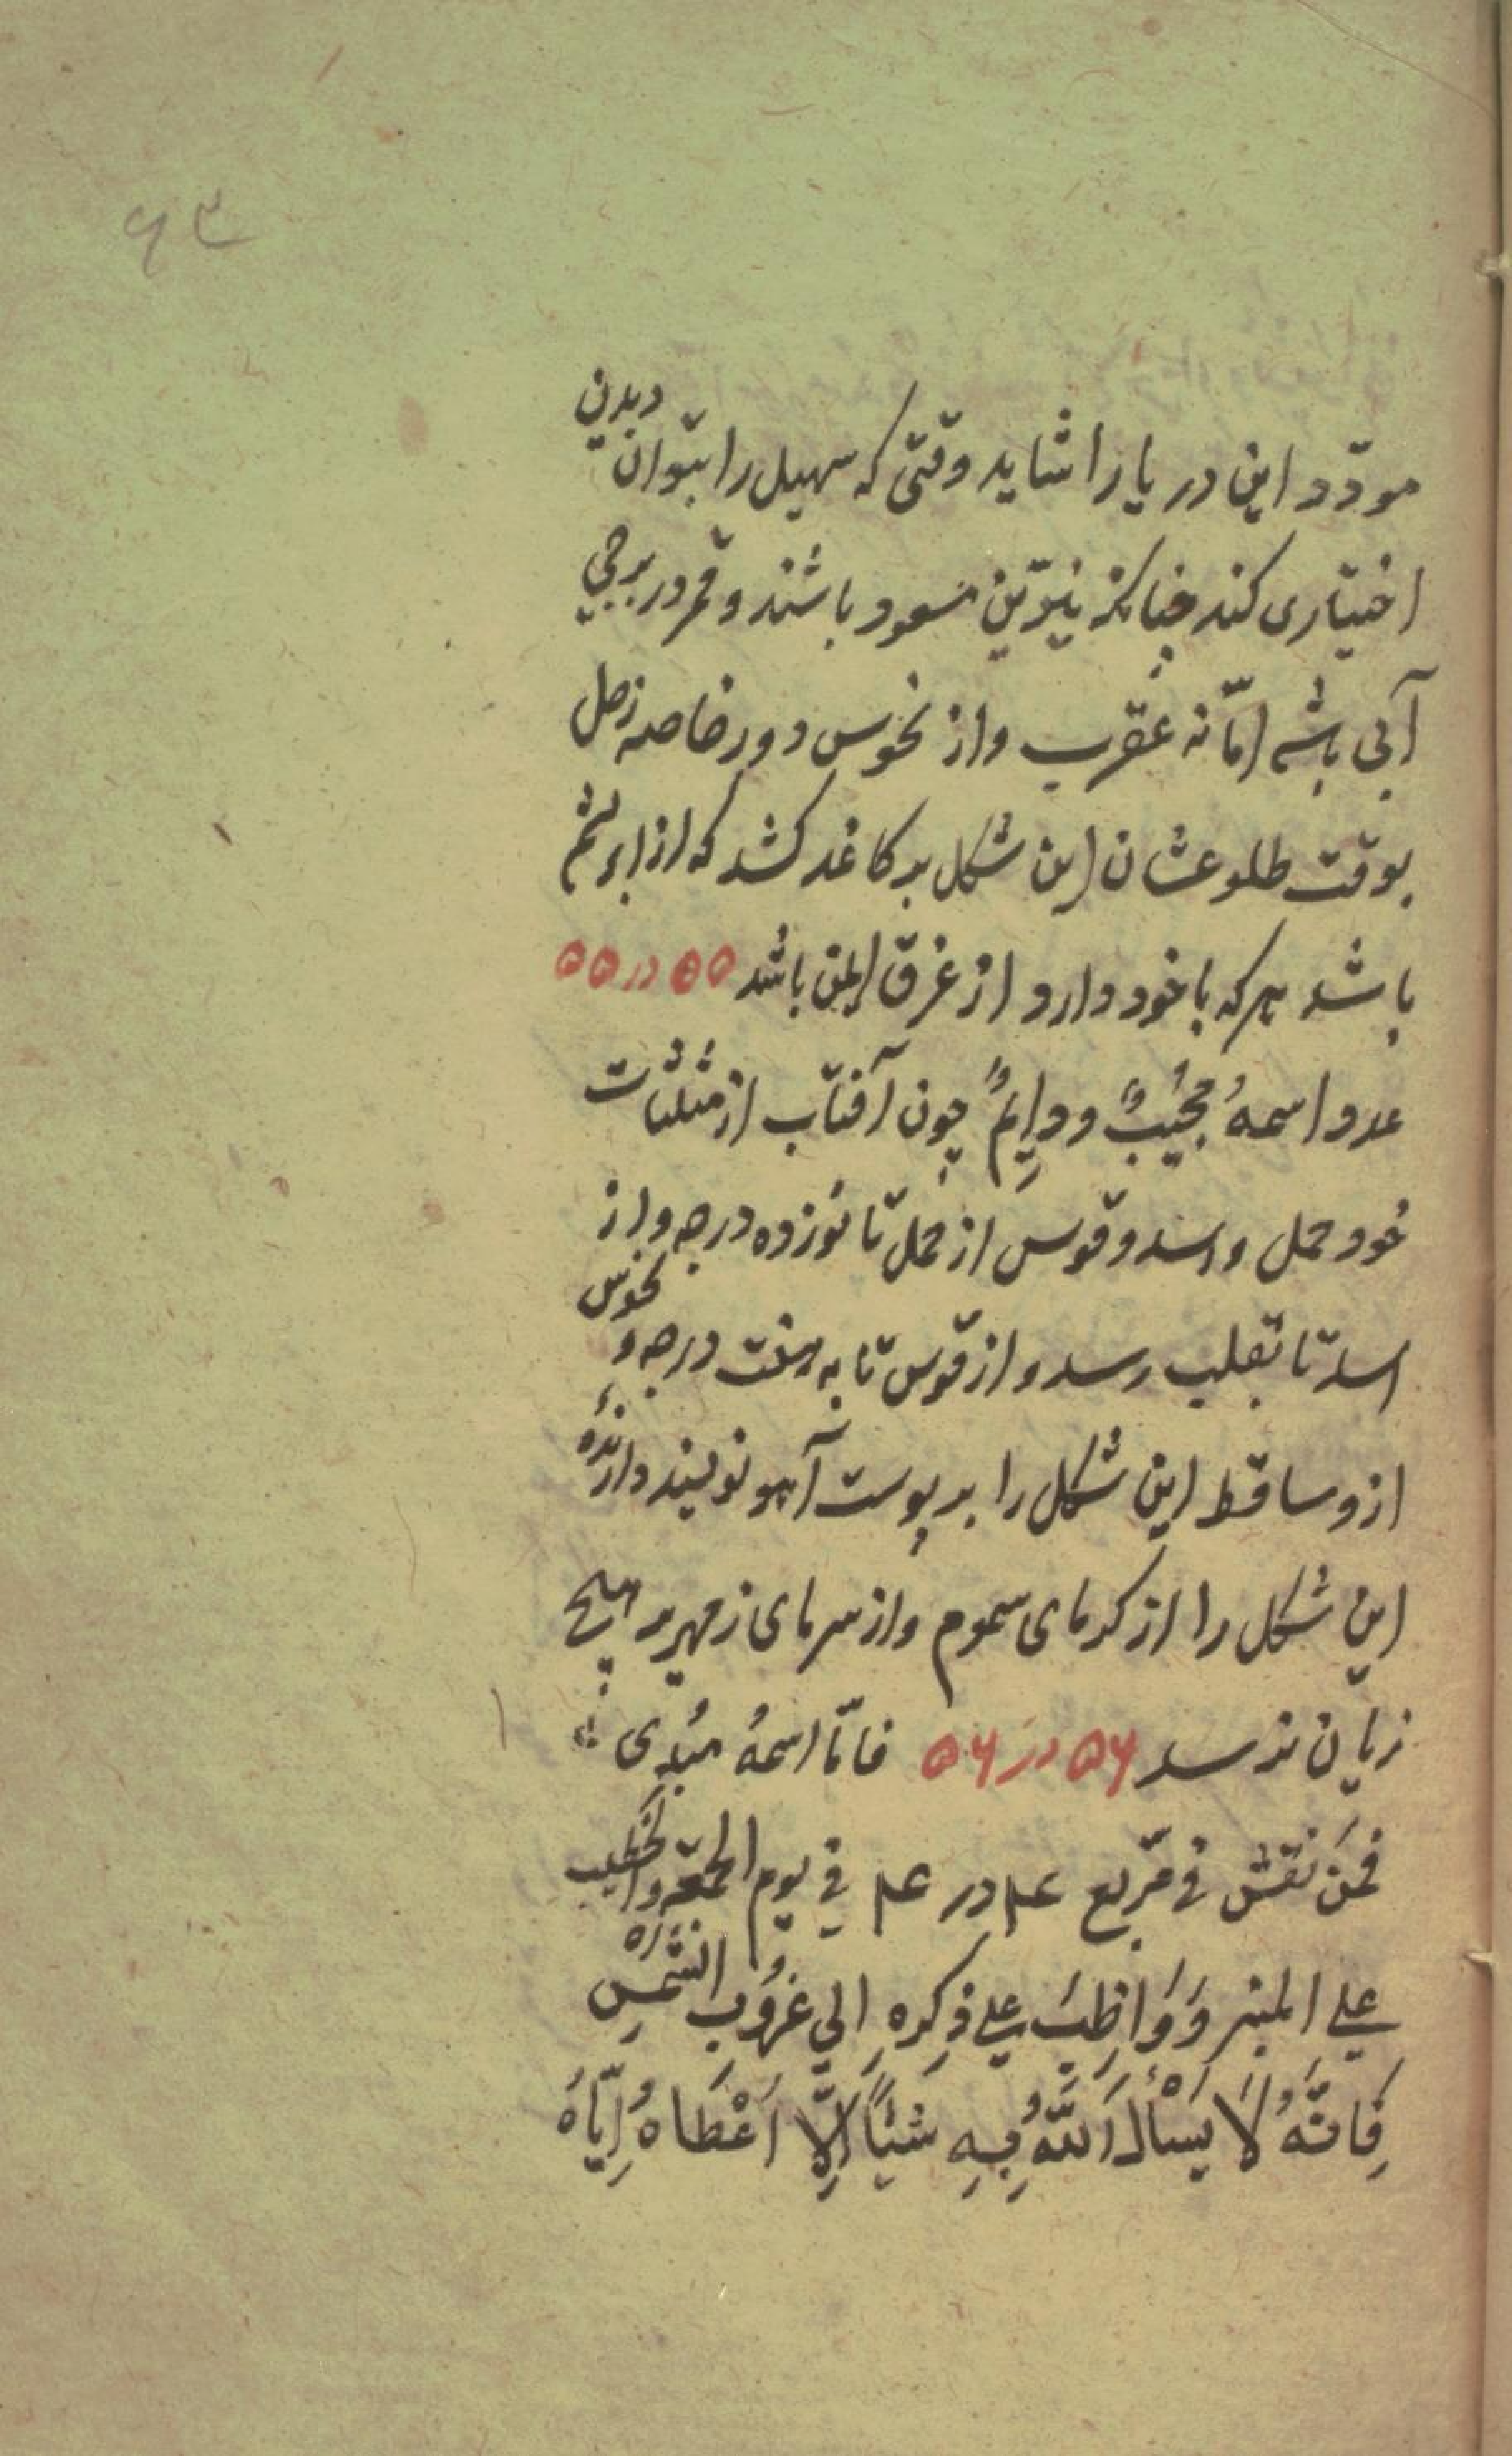 ۶۳
مودّد این دریا را شاید وقتی که سهیل را بتوان دیدن
اختیاری کند چنانکه نیّرین مسعود باشند و قمر در برجی
آبی باشد امّا نه عقرب و از نحوس دور خاصه زحل
بوقت طلوعشان این شکل بر کاغد کشد که از ابریشم
باشد هر که با خود دارد از غرق ایمن باشد ۵۵ در ۵۵
عدد اسمهُ مجیبٌ و دایمٌ چون آفتاب از مثلثات
خود حمل و اسد و قوس از حمل تا نوزده درجه و از
اسد تا بقلب رسد و از قوس تا به هفت درجه و نحوس
ازو ساقط این شکل را بر پوست آهو نویسند دارندهٔ
این شکل را از کرمای سموم و از سرمای زمهریر هیچ
زیان نرسد ۵۶ در ۵۶ فامّا اسمهُ مبُدی
فمَن نَقش فی مرّبع ع‍ در ع‍ فی یوم الجمعة والخَطیب
علی المنبر وَوَاظِبَ علی ذِکرهِ اِلی غرُوبِ الشّمسِ
فَاِنّهُ لَا یَسْأَل اَللّهُ فِیهِ شَیئاً اِلّا اَعْطَاهُ اِیّاهُ